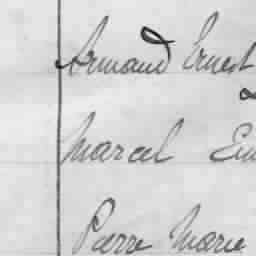 Armand Ernest
Marcel
Pierre Marie